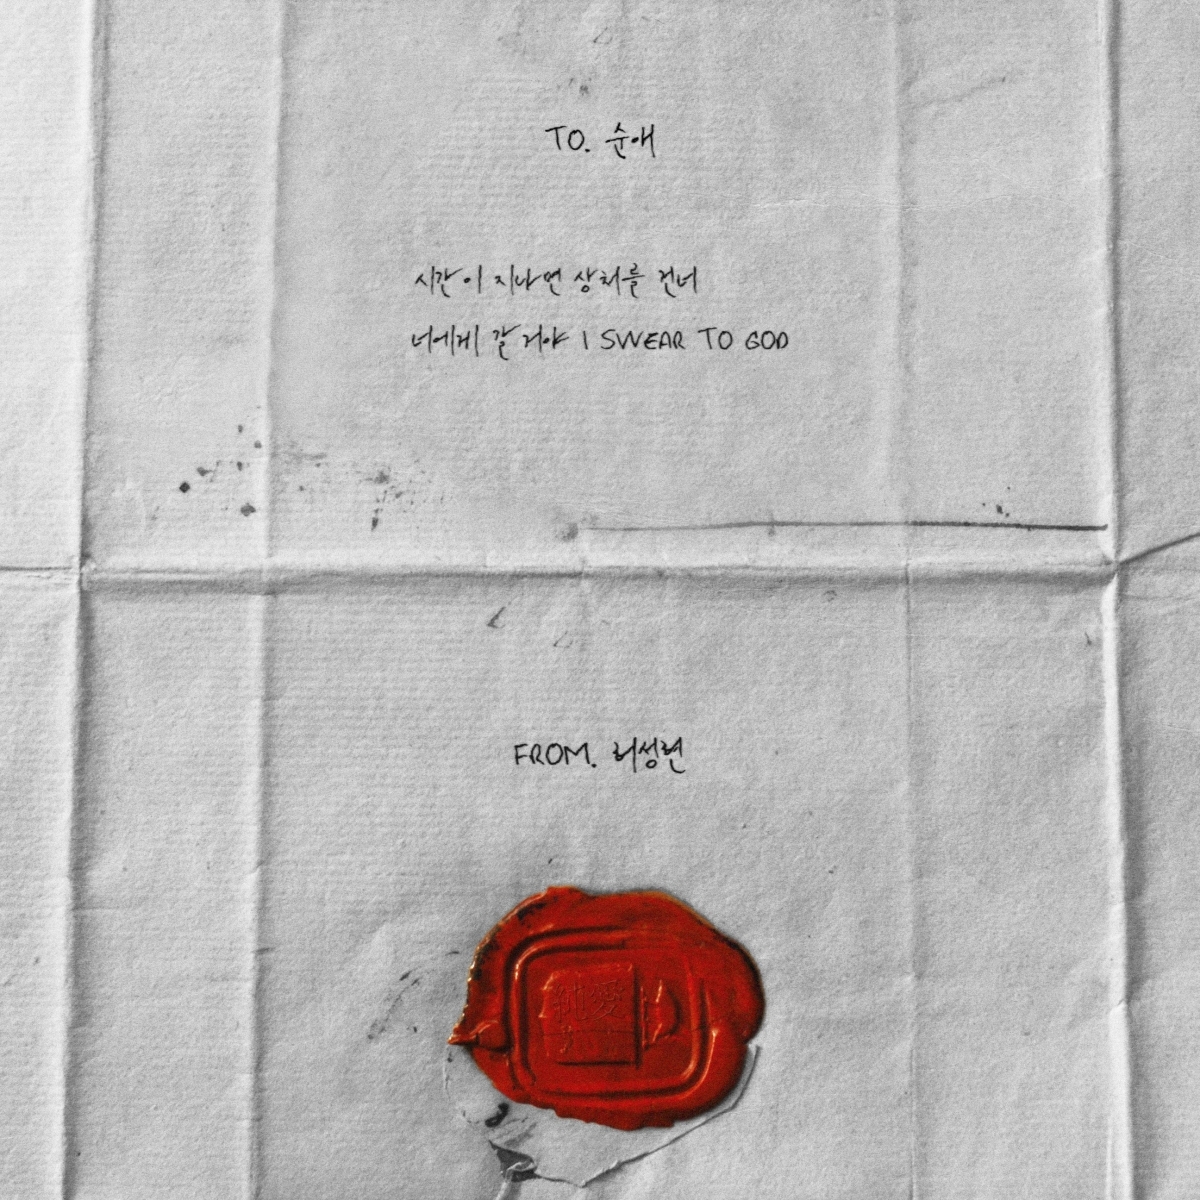 TO. 순애
시간이 지나면 상처를 건너
너에게 갈 거야 I SWEAR TO GOD
FROM. 허성현
純愛